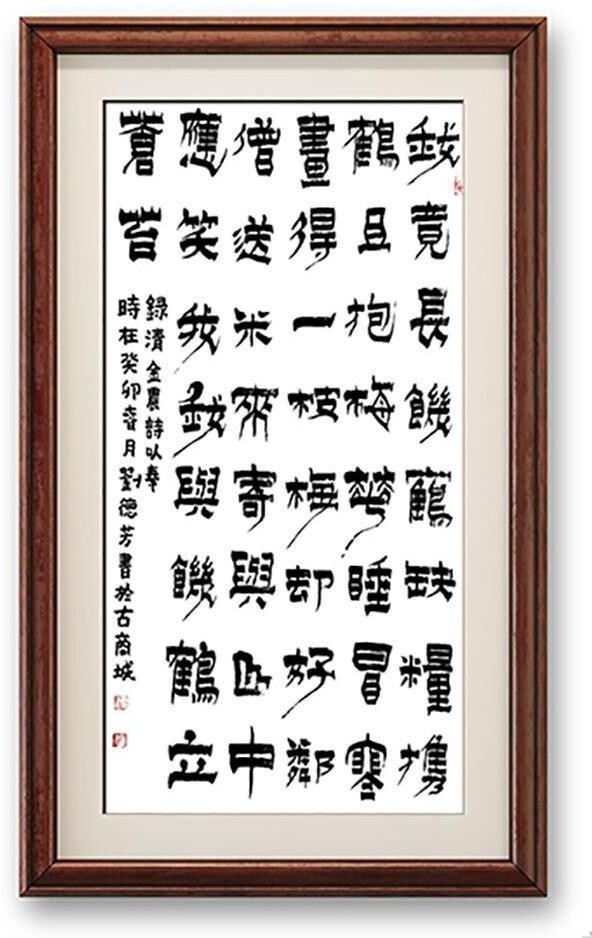 我竟長饑鶴缺糧攜
鶴且抱梅華睡冒寒
畫得一枝梅却好鄰
僧送米來寄與山中
應笑我我與饑鶴立
蒼苔
錄清金農詩以奉
時在癸卯春月劉德芳書於古商城